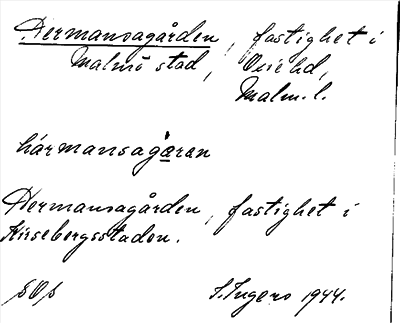 Hermansagården, fastighet i
Malmö stad, Oxie hd,
Malm. l.
hármansagåran
Hermansagården, fastighet i
Kirsebergsstaden.
S. Ingers 1944.